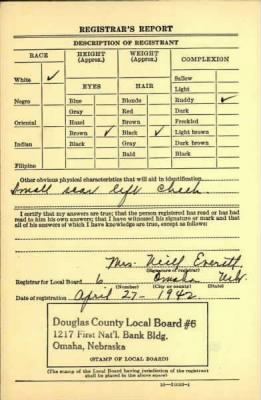 REGISTRAR'S REPORT
DESCRIPTION OF REGISTRANT
RACE HEIGHT (Approx.) WEIGHT (Approx.) COMPLEXION
White ✓ Sallow
EYES HAIR Light
Negro Blue Blonde Ruddy ✓
Gray Red Dark
Oriental Hazel Brown Freckled
Brown ✓ Black ✓ Light brown
Indian Black Gray Dark brown
Bald Black
Filipino
Other obvious physical characteristics that will aid in identification
Small scar left Cheek
I certify that my answers are true; that the person registered has read or has had
read to him his own answers; that I have witnessed his signature or mark and that
all of his answers of which I have knowledge are true, except as follows:
Mrs. Everett
(Signature of registrar)
Registrar for Local Board 6 Omaha Neb.
(Number) (City or county) (State)
Date of registration April 27 - 1942
Douglas County Local Board #6
1217 First Nat'l. Bank Bldg.
Omaha, Nebraska
(STAMP OF LOCAL BOARD)
(The stamp of the Local Board having jurisdiction of the registrant
shall be placed in the above space)